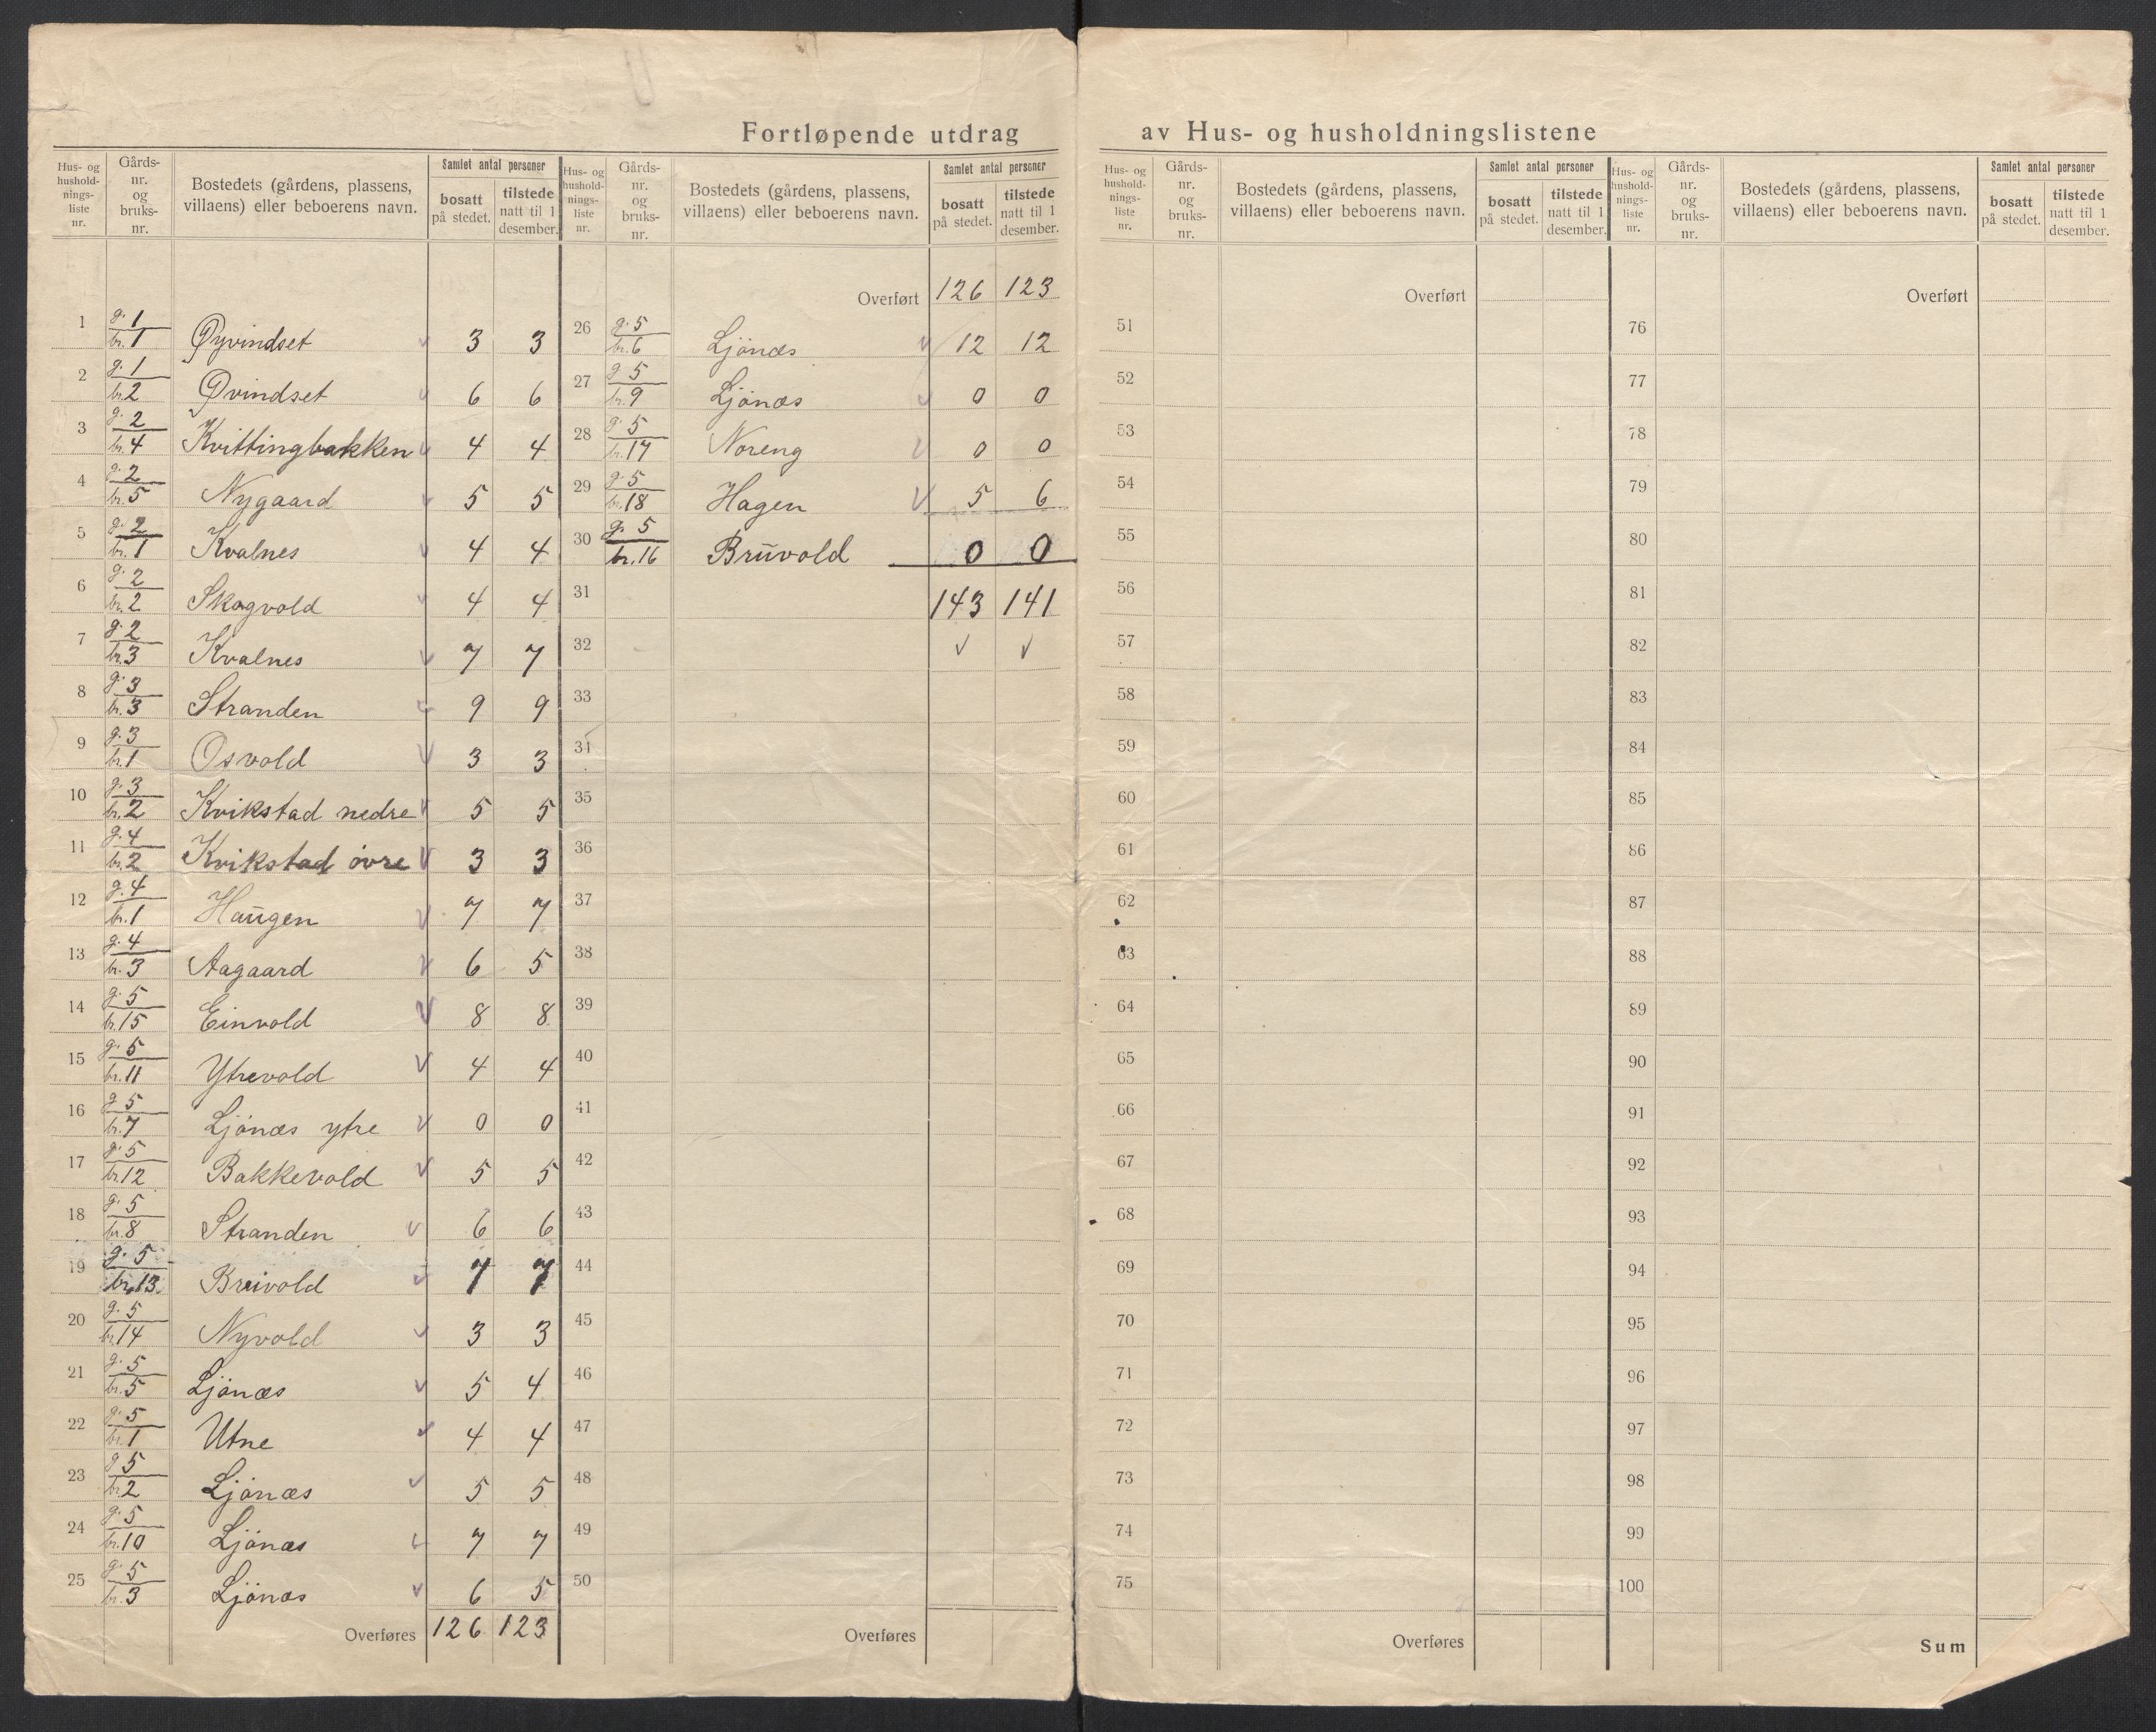 Fortløpende utdrag av Hus- og husholdningslistene
Hus- og hushold- nings- liste nr. | Gårds- nr. og bruks- nr. | Bostedets (gårdens, plassens, villaens) eller beboerens navn. | Samlet antal personer | bosatt på stedet. | tilstede natt til 1 desember.
1 g. 1 br. 1 Øyvindset 3 3
2 g. 1 br. 2 Øvindset 6 6
3 g. 2 br. 4 Kvittingbakken 4 4
4 g. 2 br. 5 Nygaard 5 5
5 g. 2 br. 1 Kvalnes 4 4
6 g. 2 br. 2 Skogvold 4 4
7 g. 2 br. 3 Kvalnes 7 7
8 g. 3 br. 3 Stranden 9 9
9 g. 3 br. 1 Osvold 3 3
10 g. 3 br. 2 Kvikstad nedre 5 5
11 g. 4 br. 2 Kvikstad övre 3 3
12 g. 4 br. 1 Haugen 7 7
13 g. 4 br. 3 Aagaard 6 5
14 g. 5 br. 15 Einvold 8 8
15 g. 5 br. 11 Ytrevold 4 4
16 g. 5 br. 7 Ljönæs ytre 0 0
17 g. 5 br. 12 Bakkevold 5 5
18 g. 5 br. 8 Stranden 6 6
19 g. 5 br. 13 Breivold 7 7
20 g. 5 br. 14 Nyvold 3 3
21 g. 5 br. 5 Ljönæs 5 4
22 g. 5 br. 1 Utne 4 4
23 g 5 br. 2 Ljönæs 5 5
24 g. 5 br. 10 Ljönæs 7 7
25 g. 5 br. 3 Ljönæs 6 5
Overføres 126 123
Hus- og hushold- nings- liste nr. | Gårds- nr. og bruks- nr. | Bostedets (gårdens, plassens, villaens) eller beboerens navn. | Samlet antal personer | bosatt på stedet. | tilstede natt til 1 desember.
Overført 126 123
26 g. 5 br. 6 Ljönæs 12 12
27 g. 5 br. 9 Ljönæs 0 0
28 g. 5 br. 17 Noreng 0 0
29 g. 5 br. 18 Hagen 5 6
30 g. 5 br. 16 Bruvold 0 0
31 143 141
32
33
34
35
36
37
38
39
40
41
42
43
44
45
46
47
48
49
50
Overføres
Hus- og hushold- nings- liste nr. | Gårds- nr. og bruks- nr. | Bostedets (gårdens, plassens, villaens) eller beboerens navn. | Samlet antal personer | bosatt på stedet. | tilstede natt til 1 desember.
Overført
51
52
53
54
55
56
57
58
59
60
61
62
63
64
65
66
67
68
69
70
71
72
73
74
75
Overføres
Hus- og hushold- nings- liste nr. | Gårds- nr. og bruks- nr. | Bostedets (gårdens, plassens, villaens) eller beboerens navn. | Samlet antal personer | bosatt på stedet. | tilstede natt til 1 desember.
Overført
76
77
78
79
80
81
82
83
84
85
86
87
88
89
90
91
92
93
94
95
96
97
98
99
100
Sum